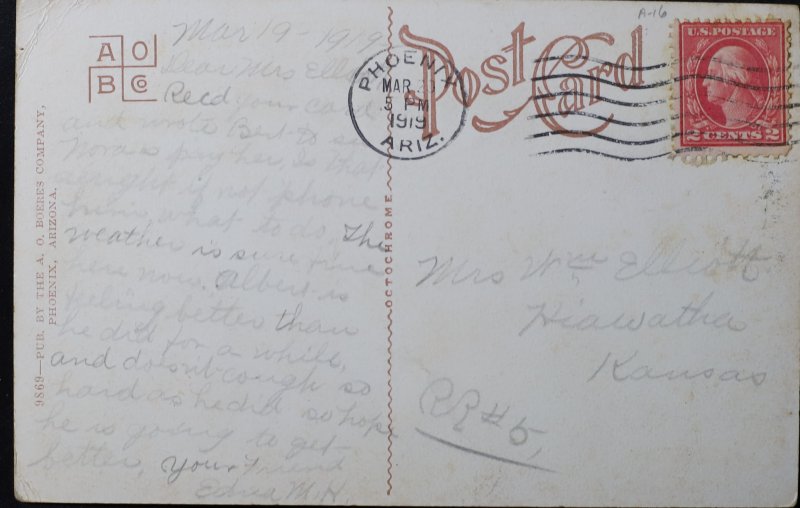 A-16
A O
B Co
Post Card
PHOENIX
MAR. 20
5 PM
1919
ARIZ.
U.S. POSTAGE
2 CENTS 2
9869—PUB. BY THE A. O. BOERES COMPANY,
PHOENIX, ARIZONA.
OCTOCHROME
Mar 19 - 1919
Dear Mrs Elliott
Recd your card
and wrote Bert to see
Nora & pay her, Is that
alright if not phone
him what to do, The
weather is sure fine
here now. Albert is
feeling better than
he did for a while,
and doesn't cough so
hard as he did so hope
he is going to get
better, Your Friend
Edna M. H.
Mrs Wm Elliott
Hiawatha
Kansas
RR#5,